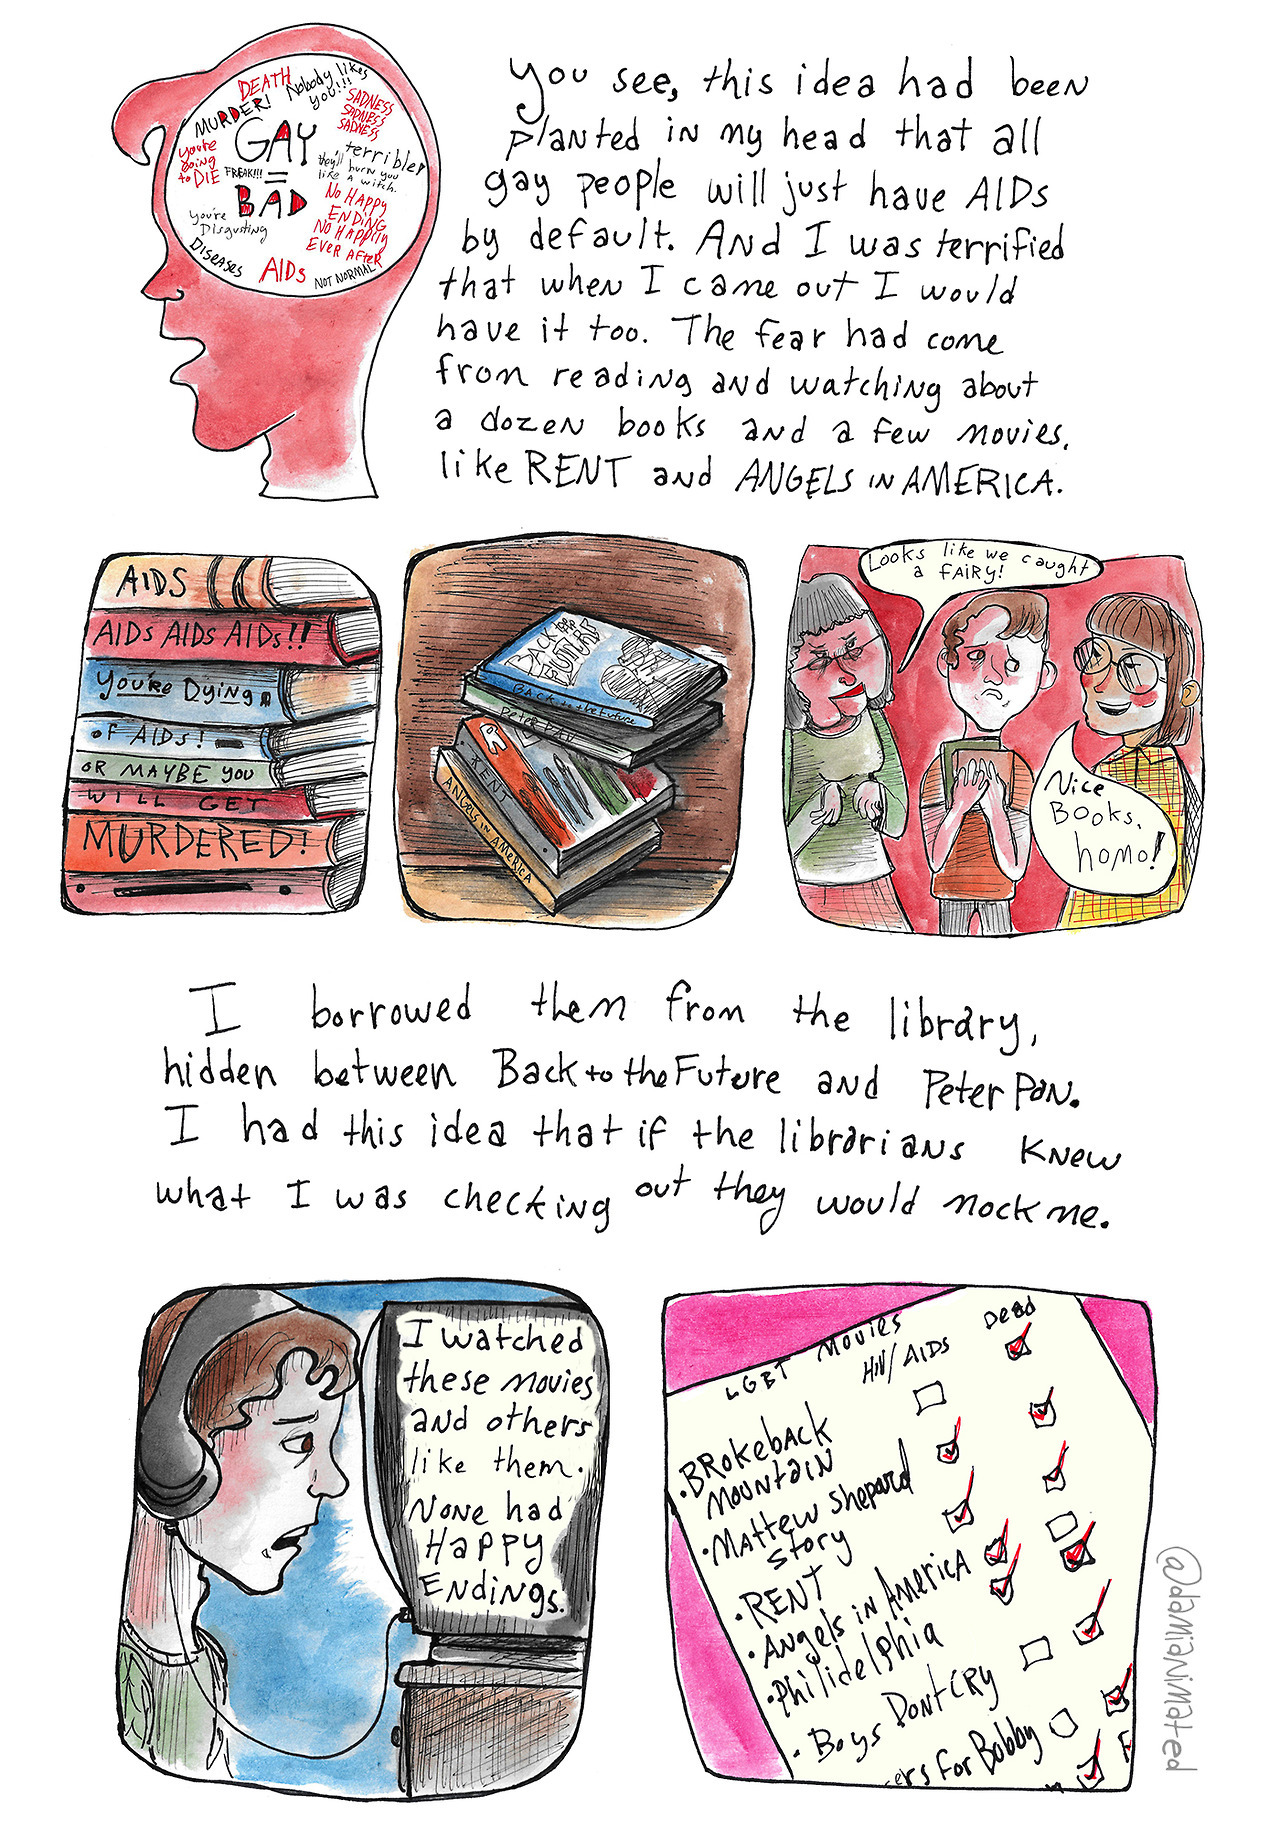 DEATH
Nobody likes
you!!!
MURDER!
SADNESS
SADNESS
SADNESS
GAY
=
BAD
you're
going
to DIE
FREAK!!!
terrible!
they'll
burn you
like a witch.
NO HAPPY
ENDING
NO HAPPILY
EVER AFTER
you're
Disgusting
DISEASES
AIDs
NOT NORMAL!
You see, this idea had been
planted in my head that all
gay people will just have AIDs
by default. And I was terrified
that when I came out I would
have it too. The fear had come
from reading and watching about
a dozen books and a few movies.
like RENT and ANGELS IN AMERICA.
AIDS
AIDs AIDS AIDs!!
You're Dying
OF AIDS!
OR MAYBE YOU
WILL GET
MURDERED!
BACK TO THE
FUTURE
BACK to the Future
PETER PAN
RENT
ANGELS IN AMERICA
Looks like we caught
a FAIRY!
Nice
BOOKS,
homo!
I borrowed them from the library,
hidden between Back to the Future and Peter Pan.
I had this idea that if the librarians knew
what I was checking out they would mock me.
I watched
these movies
and others
like them.
None had
Happy
Endings.
LGBT Movies
HIV/AIDS
Dead
• BROKEBACK
MOUNTAIN
• Mattew Shepard
Story
• RENT
• Angels in America
• Philidelphia
• Boys Dont Cry
ers for Bobby
@damianimated